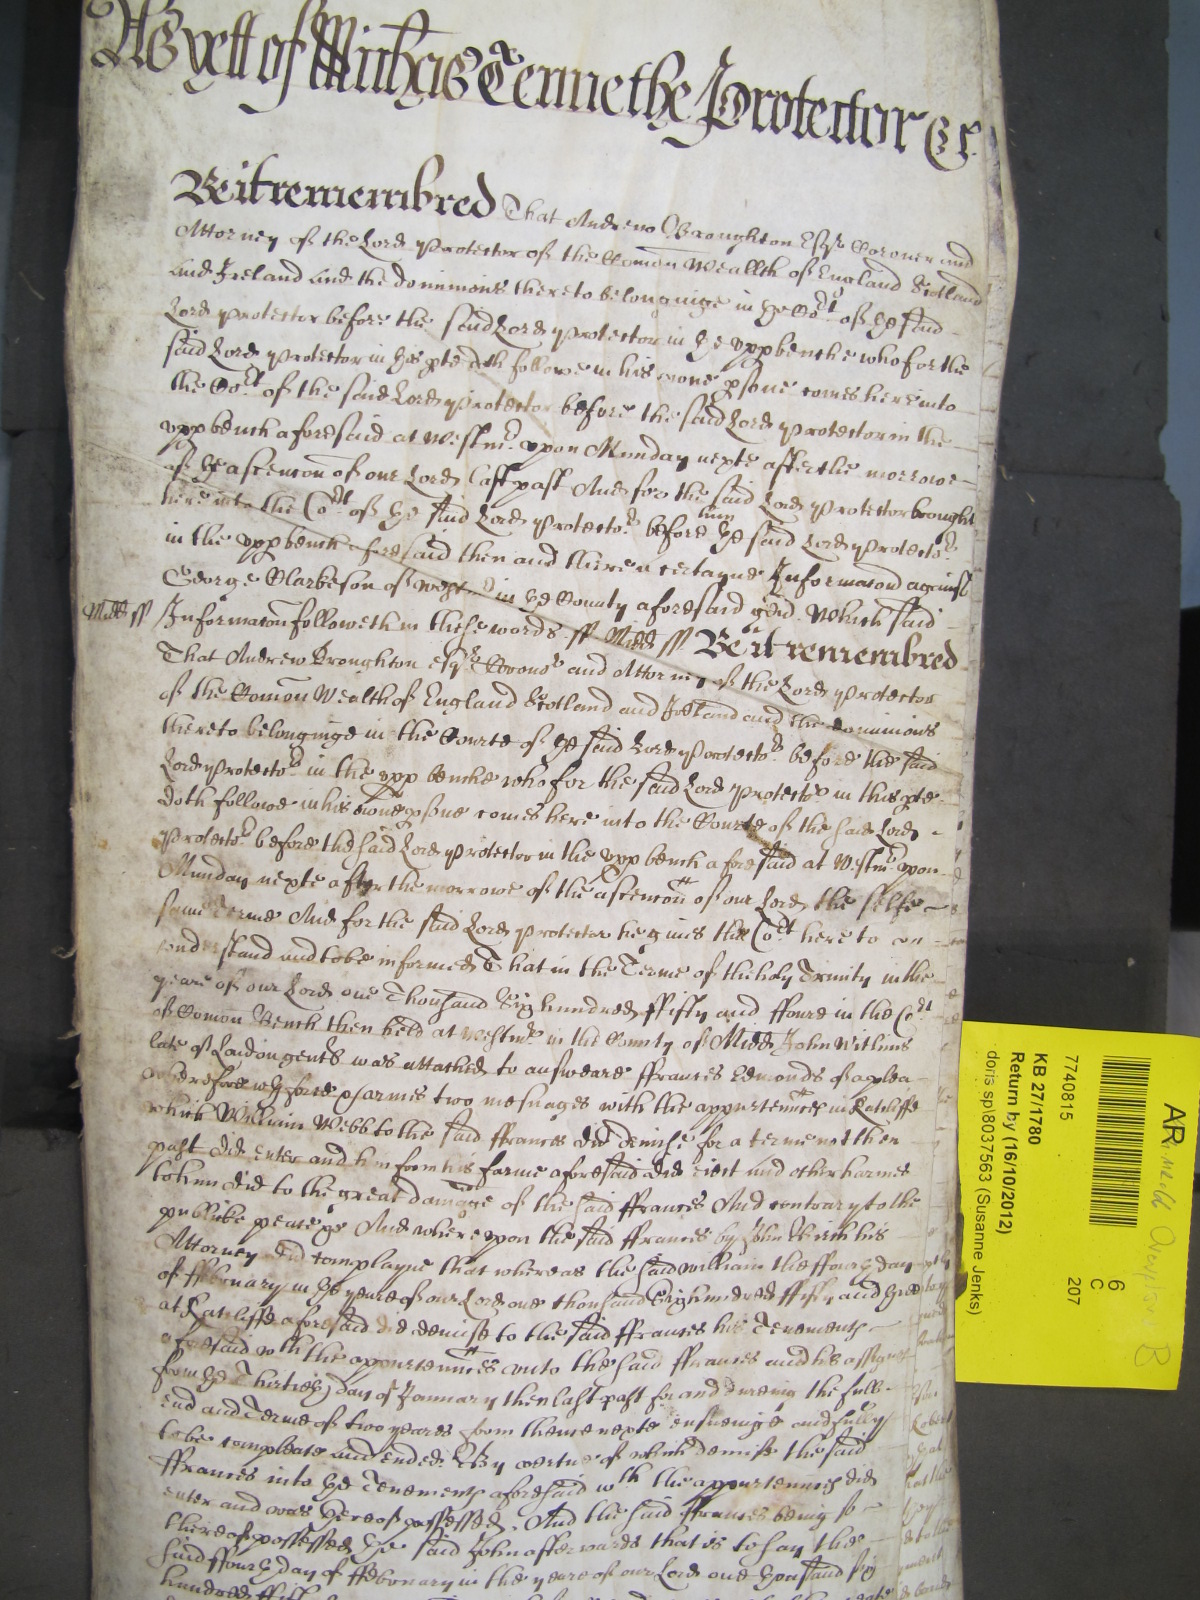 As yett of Mich'is Terme the Protector &c.
Be it remembred That Andrew Broughton Esqr Coroner and
Attorney of the Lord Protector of the Com̄on Wealth of England Scotland
and Ireland and the dominions thereto belonginge in ye Cort of ye said
Lord Protector before the said Lord Protector in ye upp benche who for the
said Lord Protector in this pte doth followe in his owne psone comes here into
the Cort of the said Lord Protector before the said Lord Protector in the
upp bench aforesaid at Westmr upon Munday nexte after the morrowe
of ye ascencon of our Lord last past And for the said Lord Protector brought
here into the Cort of ye said Lord Protector before him ye said Lord Protector
in the upp bench aforesaid then and there a certayne Informacond against
George Clarkeson of in ye County aforesaid gent Which said
Midd ss Informacon followeth in these words ss Midd ss Be it remembred
That Andrew Broughton esqr Corono' and Attorney of the Lord Protector
of the Com̄on Wealth of England Scotland and Ireland and the dominions
thereto belonginge in the Courte of ye said Lord Protector before the said
Lord Protector in the upp benche who for the said Lord Protector in this pte
doth followe in his owne psone comes here into the Courte of the said Lord
Protector before the said Lord Protector in the upp bench aforesaid at Westmr upon
Munday nexte after the morrowe of the ascencon of our Lord the selfe
same Terme And for the said Lord Protector he gives the Cort here to un
derstand and to be informed That in the Terme of the holy Trinity in the
yeare of our Lord one Thousand Six hundred ffifty and ffoure in the Cort
of Com̄on Bench then held at Westmr in the County of Midd John Withins
late of London gent was attached to answeare ffrances Edmonds of a plea
wherefore wth force & armes two mesuages with the appurtennces in Ratcliffe
which William Webb to the said ffrances did demise for a terme not then
past did enter and him from his farme aforesaid did eject and other harmes
to him did to the great damage of the said ffrances And contrary to the
publike peace &c And whereupon the said ffrances by John his
Attorney did complayne that whereas the said William the ffourth day
of ffebruary in ye yeare of our Lord one thousand Six hundred ffifty and three
at Ratcliffe aforesaid did demise to the said ffrances his Tenements
aforesaid wth the appurtennces unto the said ffrances and his assignes
from ye Thirtieth day of January then last past for and dureing the full
end and Terme of two yeares from thence nexte ensueinge and fully
to be compleate and ended By vertue of which demise the said
ffrances into ye Tenements aforesaid wth the appurtennces did
enter and was thereof possessed And the said ffrances being so
thereof possessed ye said John afterwards that is to say the
said ffourth day of ffebruary in the yeare of our Lord one thousand six
hundred ffifty
AR
6
C
207
7740815
KB 27/1780
Return by (16/10/2012)
doris sp\8037563 (Susanne Jenks)